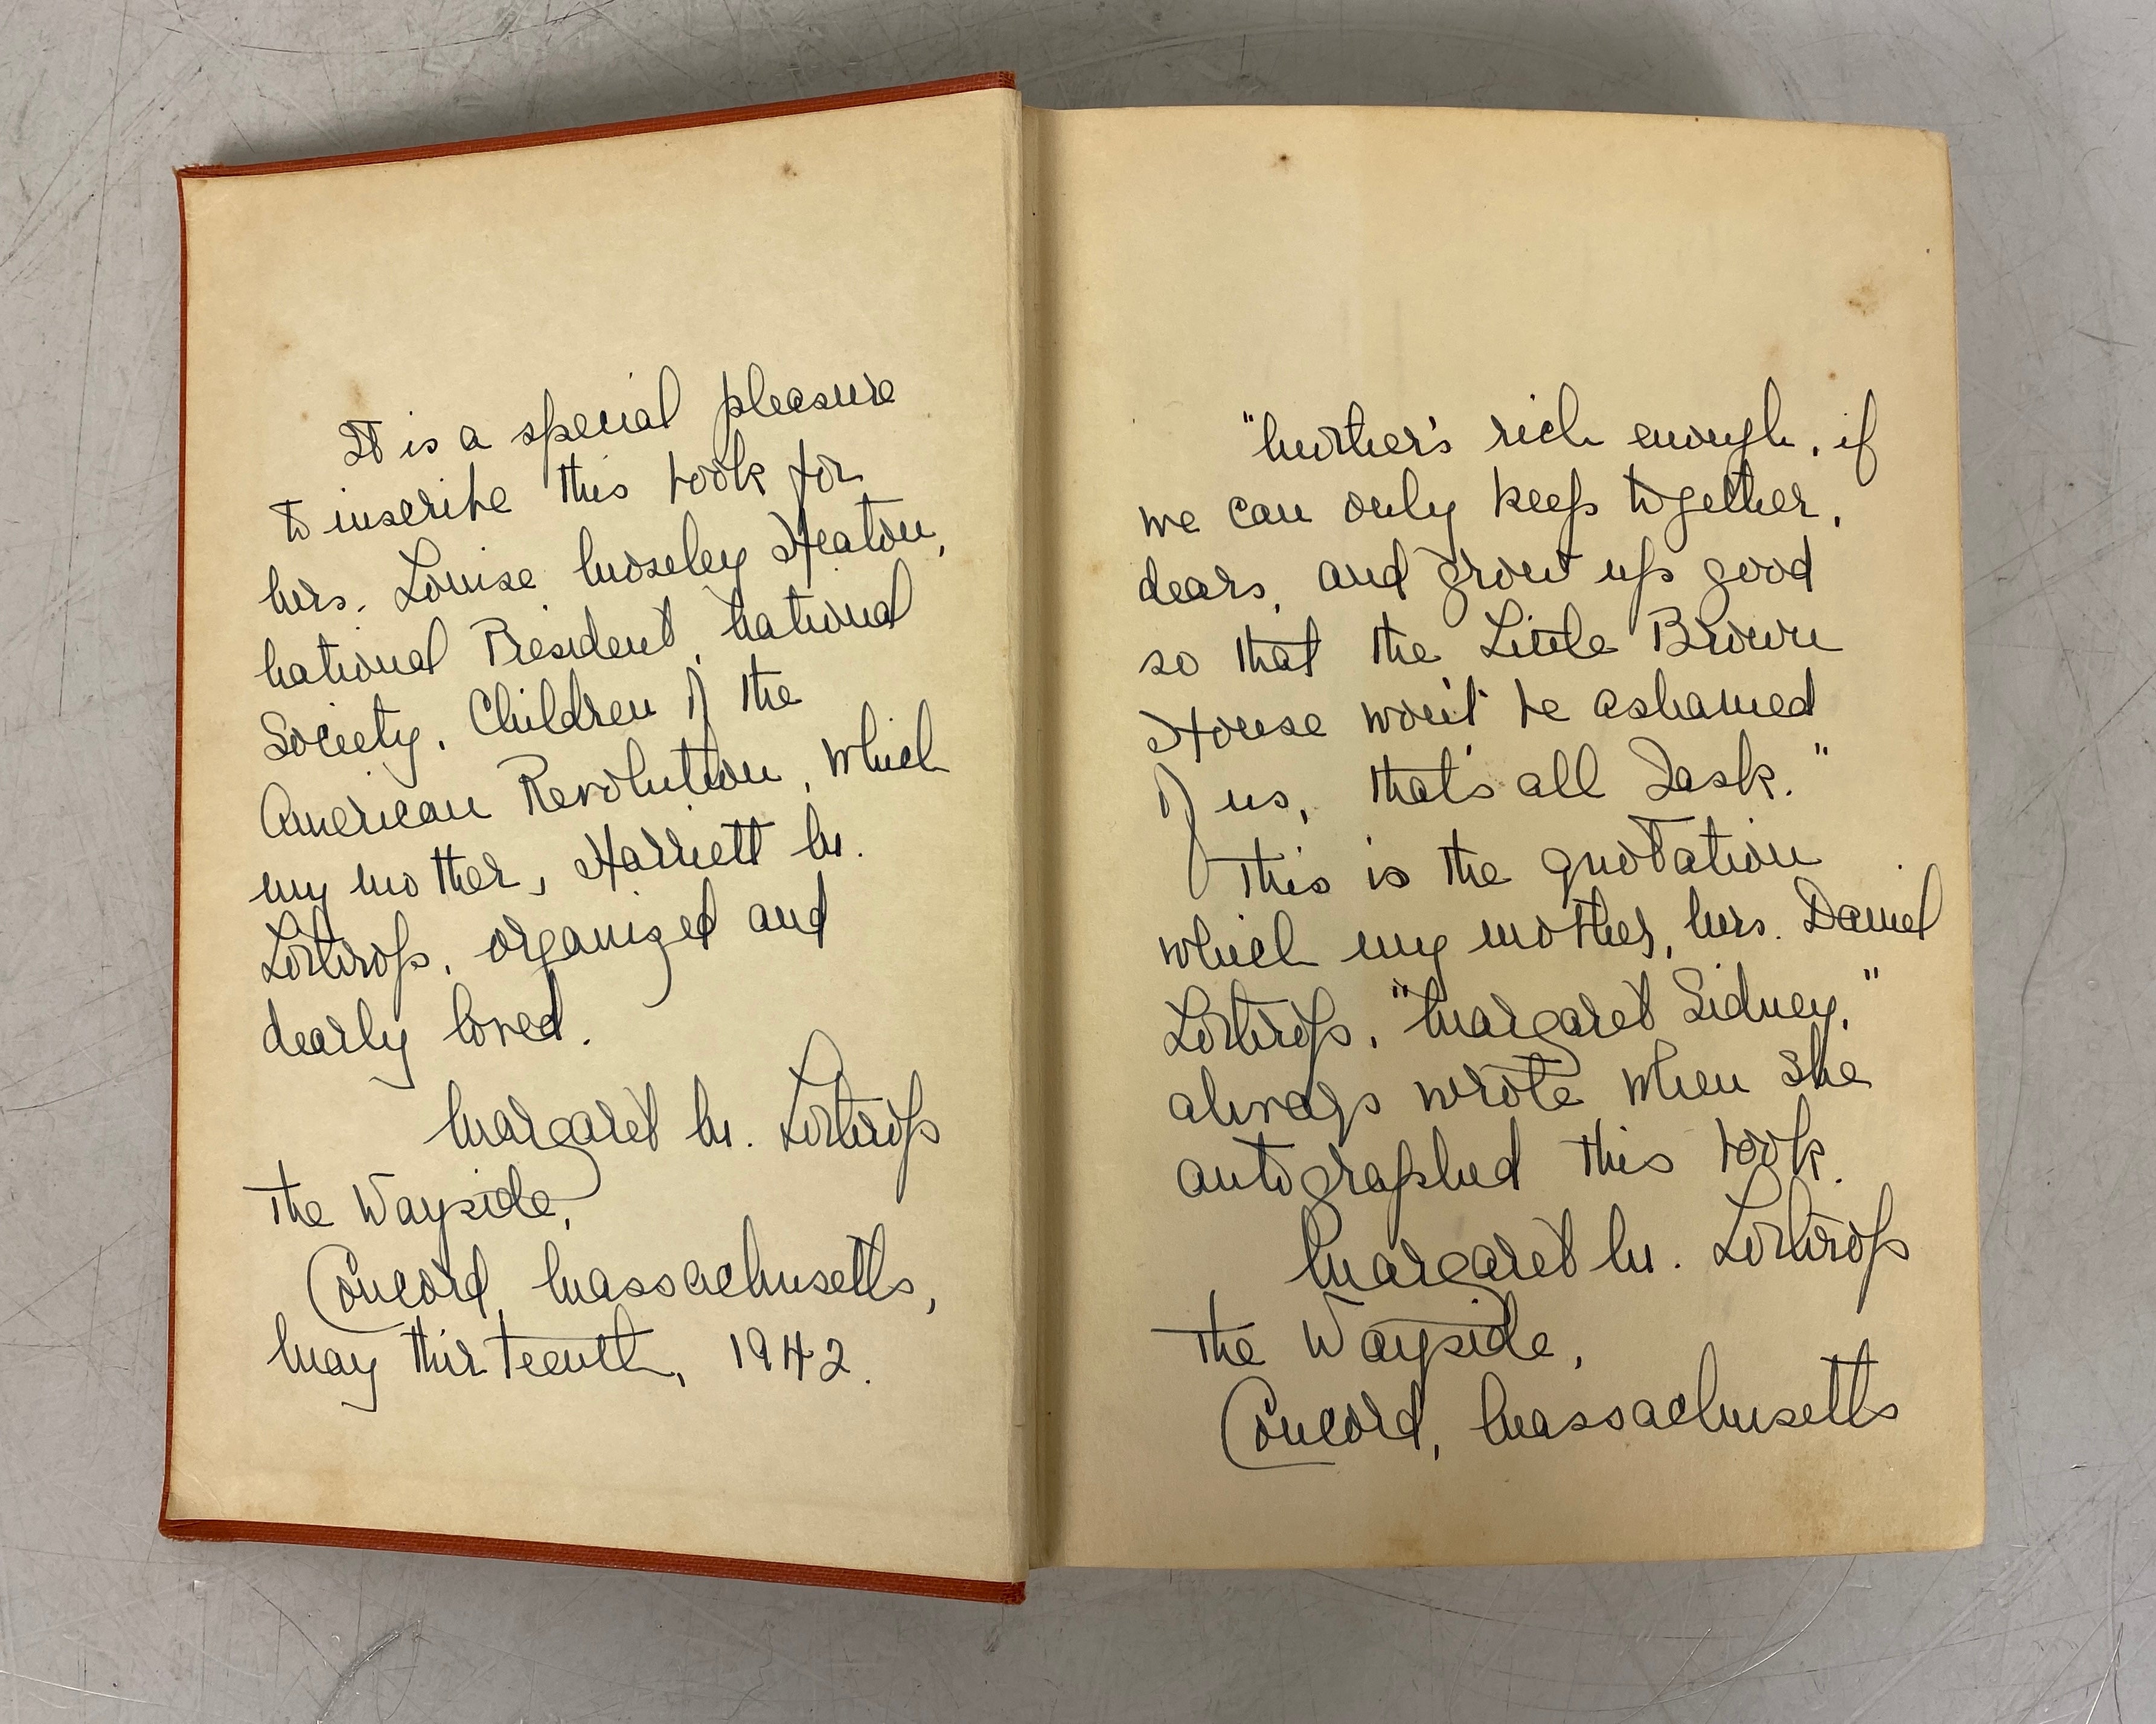 It is a special pleasure
to inscribe this book for
Mrs. Louise Moseley Heaton,
National President, National
Society, Children of the
American Revolution, which
my mother, Harriett M.
Lothrop, organized and
dearly loved.
Margaret M. Lothrop
The Wayside,
Concord, Massachusetts,
May thirteenth, 1942.
"Mother's rich enough, if
we can only keep together,
dears, and grow up good
so that the Little Brown
House won't be ashamed
of us, that's all I ask."
This is the quotation
which my mother, Mrs. Daniel
Lothrop, "Margaret Sidney,"
always wrote when she
autographed this book.
Margaret M. Lothrop
The Wayside,
Concord, Massachusetts